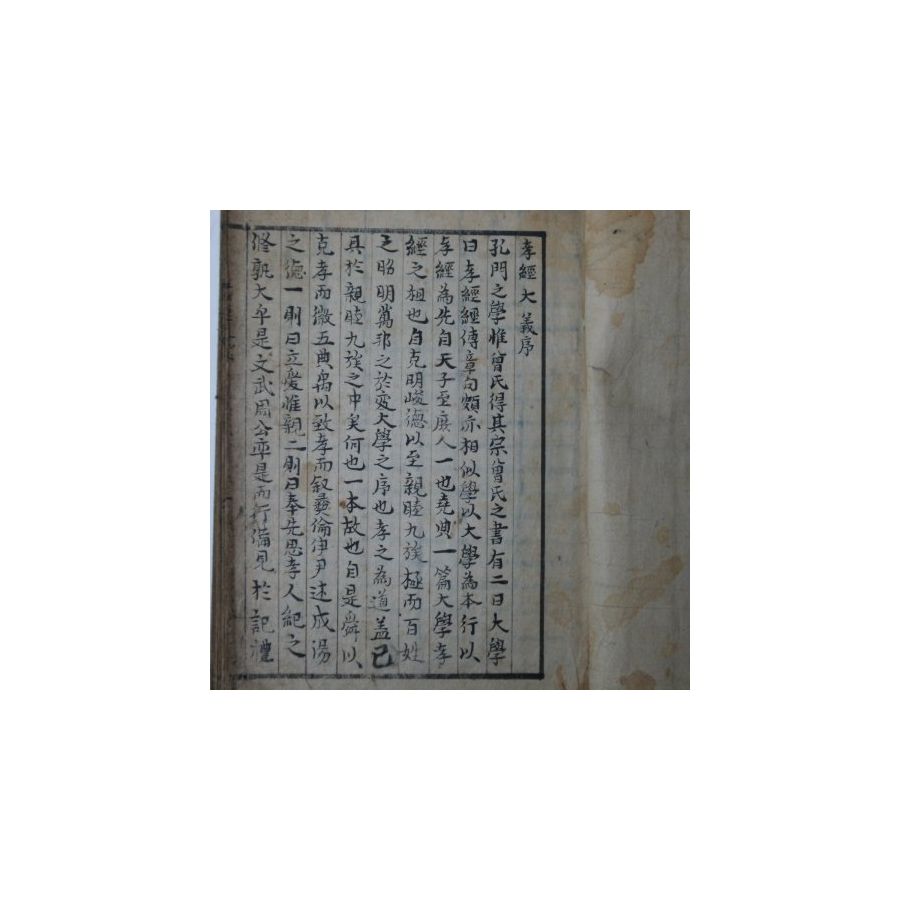 孝經大義序
孔門之學惟曾氏得其宗曾氏之書有二曰大學
曰孝經經傳章句頗亦相似學以大學為本行以
孝經為先自天子至庶人一也堯典一篇大學孝
經之祖也自克明峻德以至親睦九族極而百姓
之昭明萬邦之於変大學之序也孝之為道蓋已
具於親睦九族之中矣何也一本故也自是舜以
克孝而徽五典禹以致孝而叙彝倫伊尹述成湯
之德一則曰立愛惟親二則曰奉先思孝人紀之
修孰大乎是文武周公率是而行備見於記禮